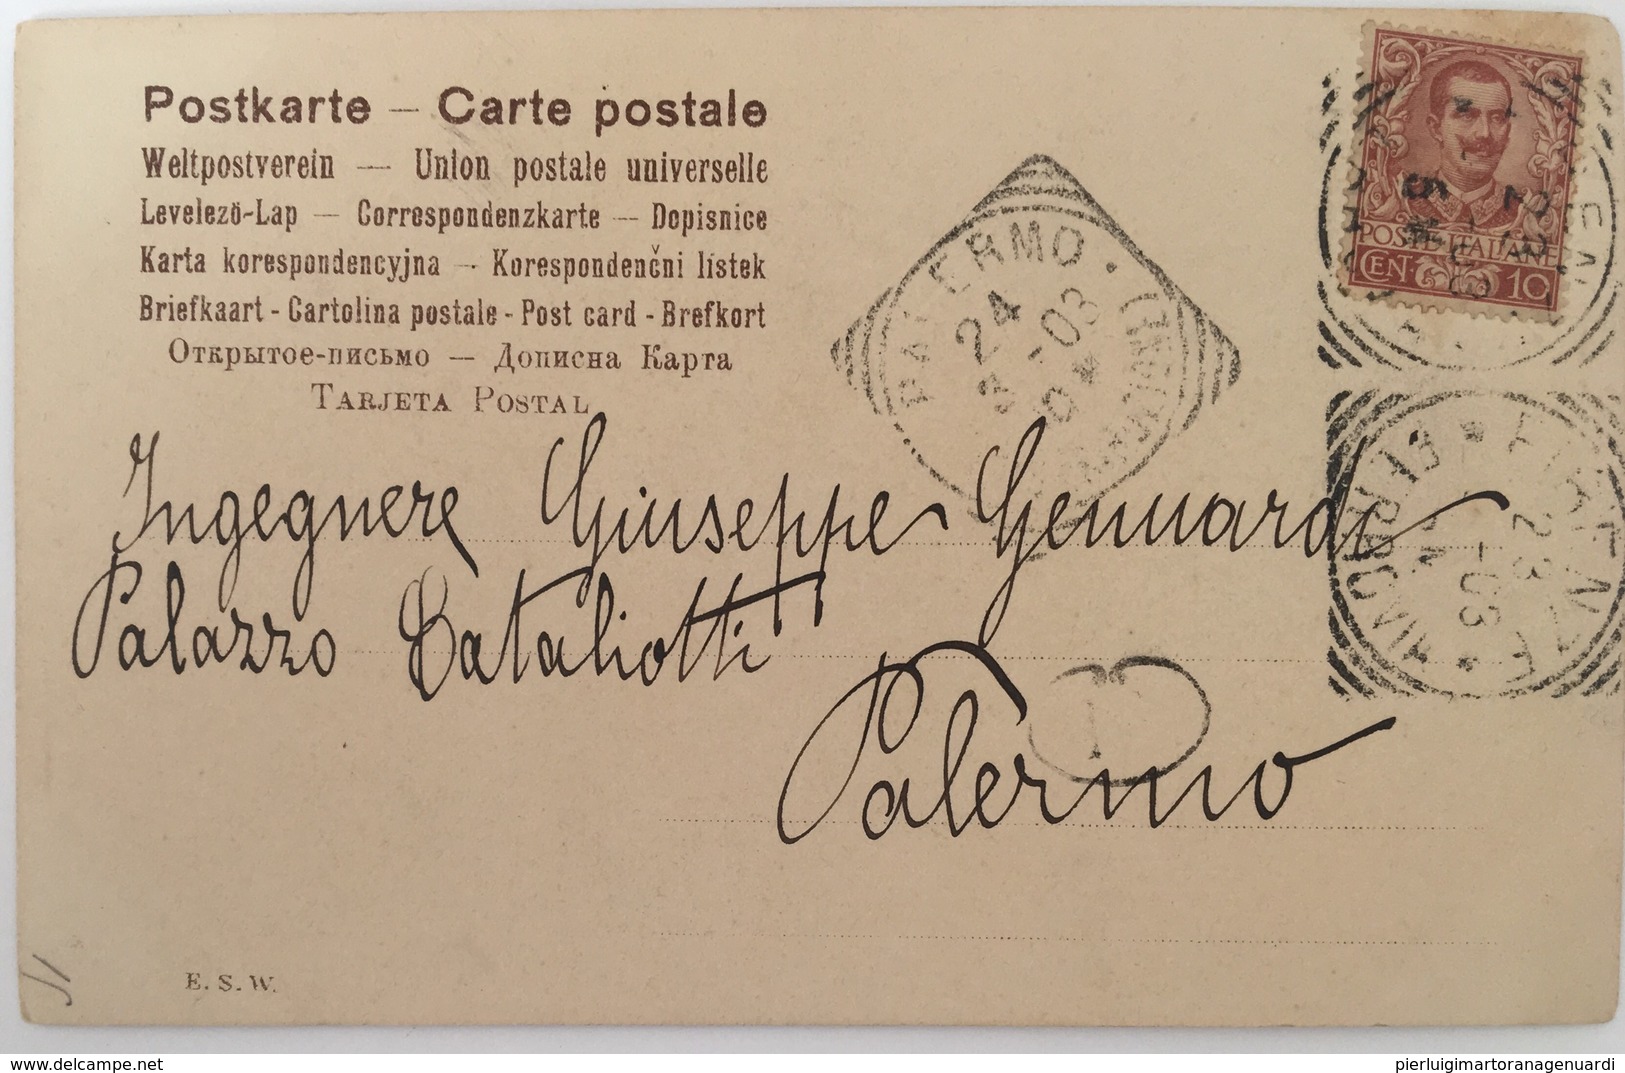 Postkarte — Carte postale
Weltpostverein — Union postale universelle
Levelező-Lap — Correspondenzkarte — Dopisnice
Karta korespondencyjna — Korespondenčni listek
Briefkaart - Cartolina postale - Post card - Brefkort
Открытое-письмо — Дописна Карта
TARJETA POSTAL
PALERMO
24
3 -03
POSTE ITALIANE
CENT. 10
FIRENZE
FERROVIA
23
-03
Ingegnere Giuseppe Gennardi
Palazzo Bataliotti
Palermo
E. S. W.
pierluigimartoranagenuardi